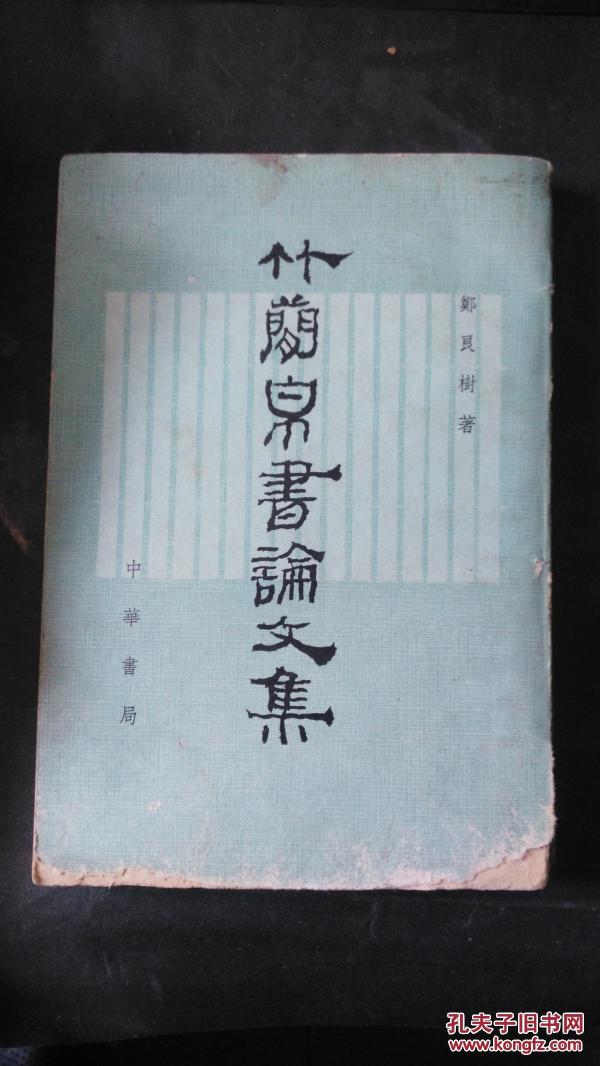 鄭良樹著
竹簡帛書論文集
中華書局
孔夫子旧书网
www.kongfz.com